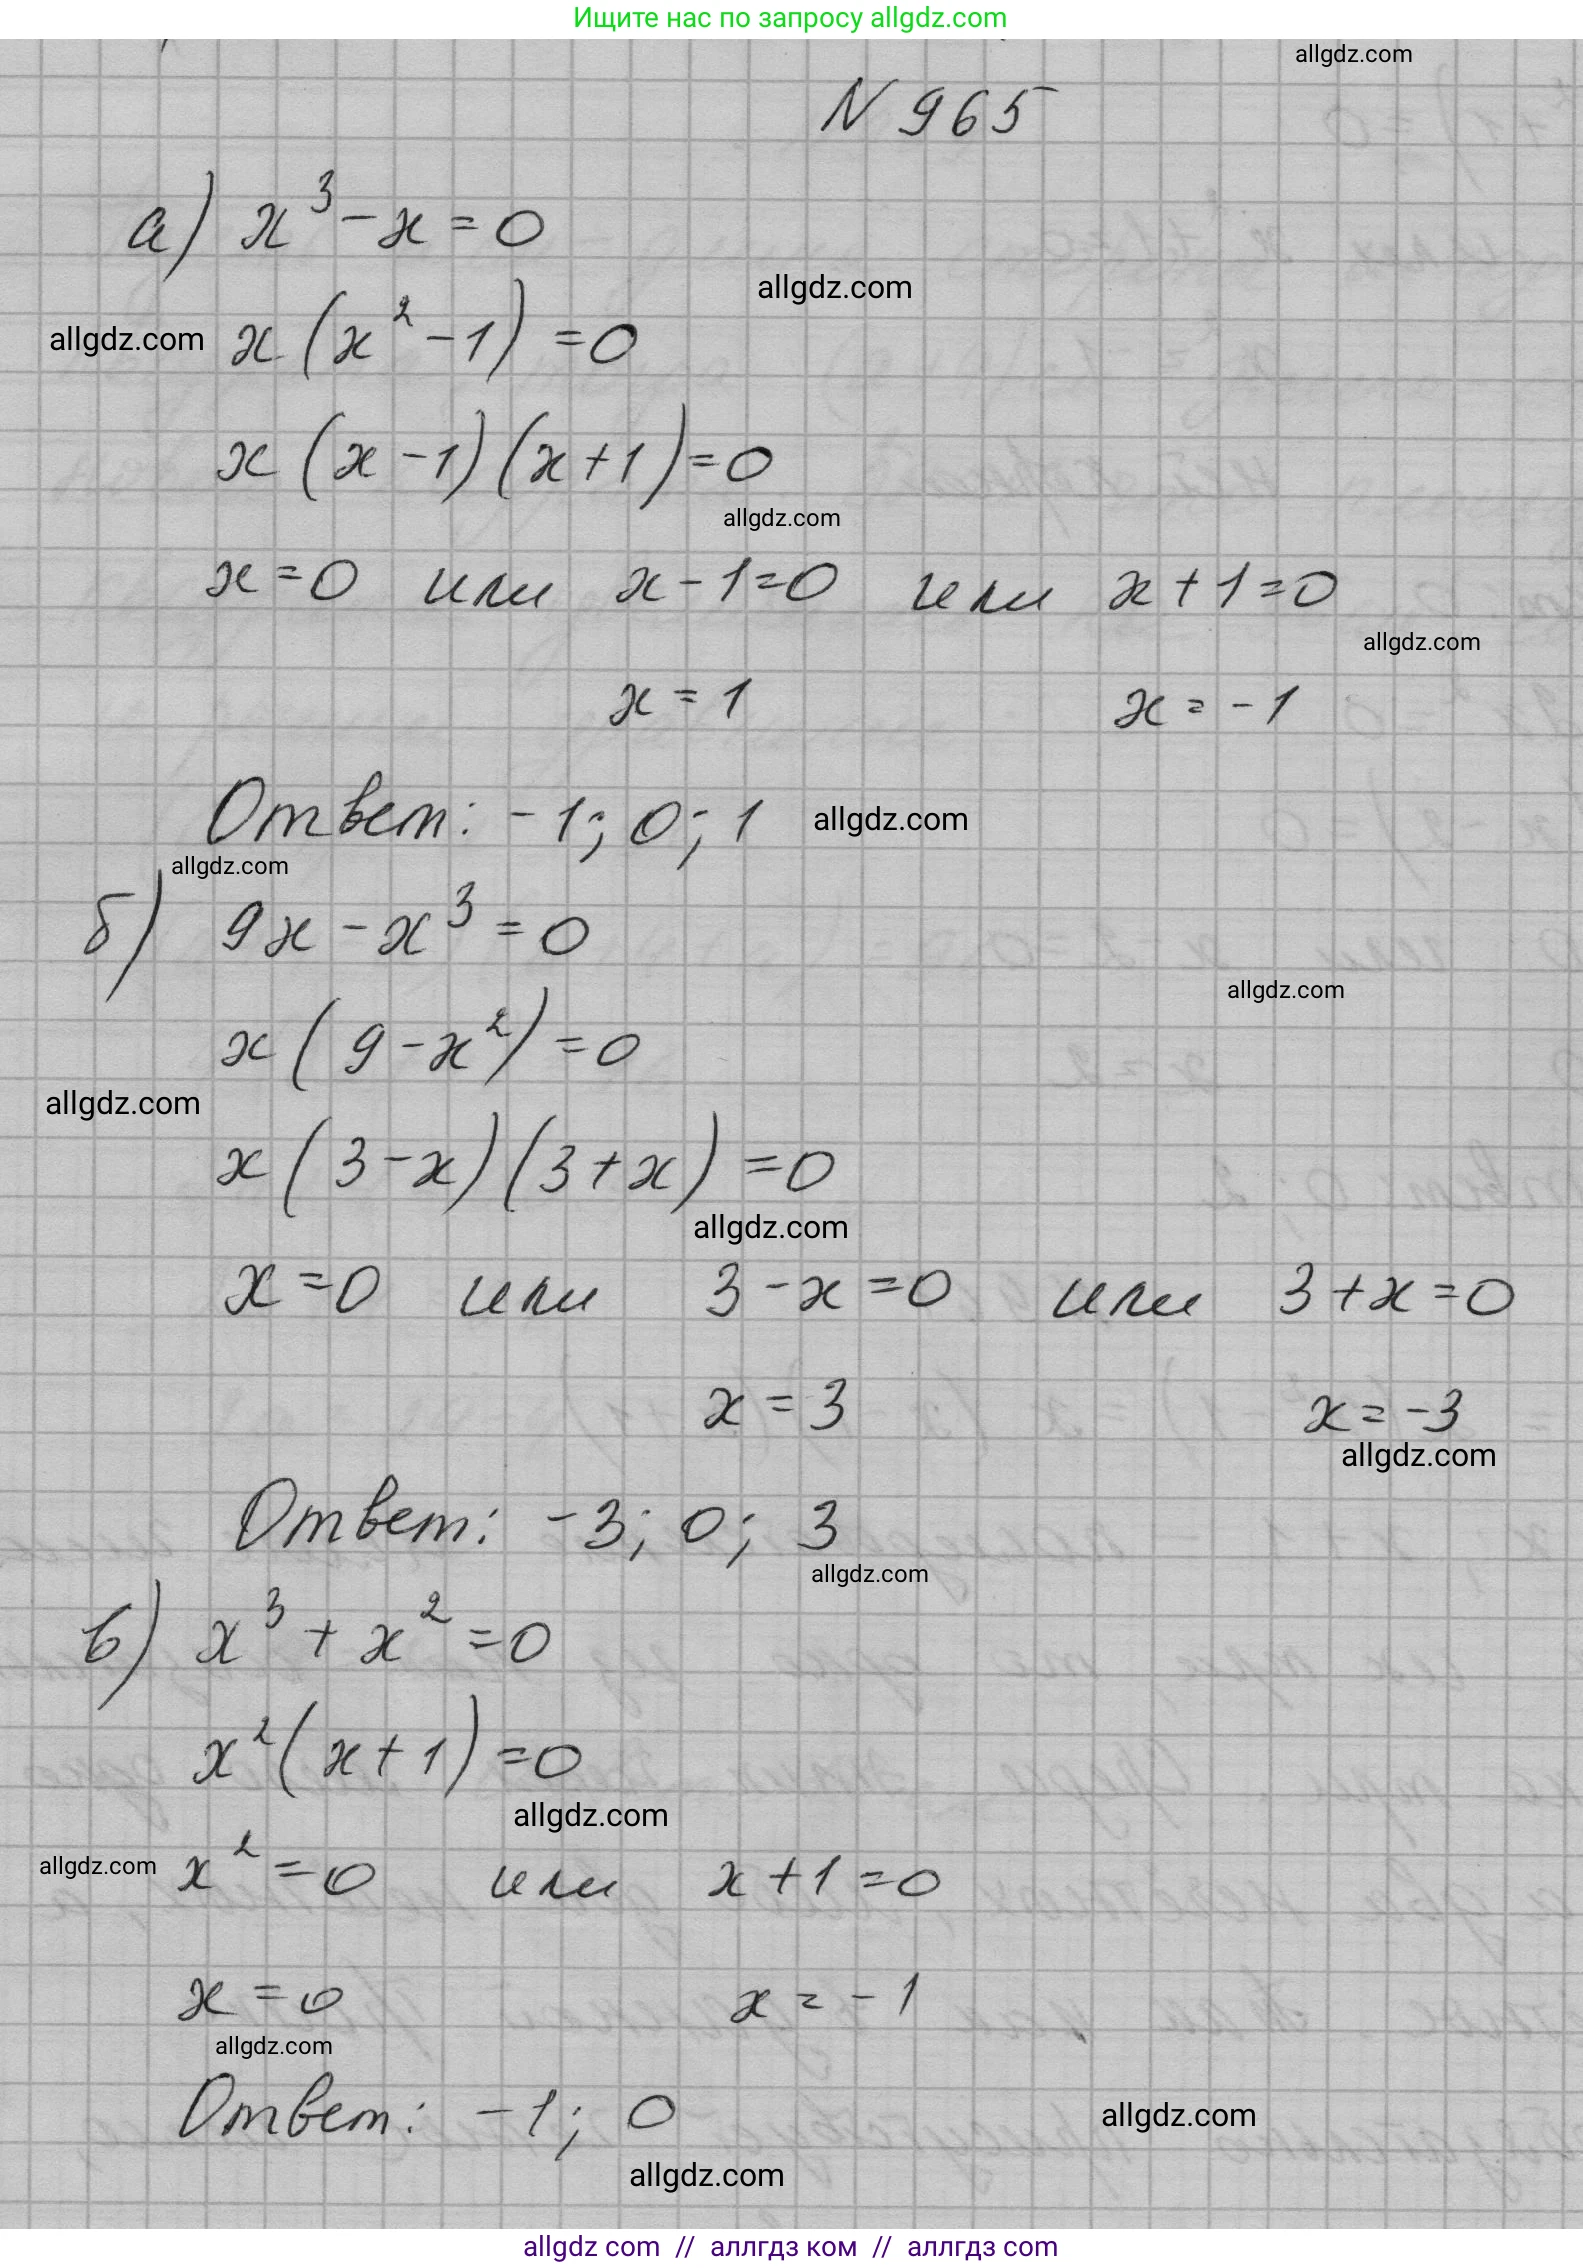 Ищите нас по запросу allgdz.com
allgdz.com
N 965
а) x³ - x = 0
allgdz.com
allgdz.com x (x² - 1) = 0
x (x - 1) (x + 1) = 0
allgdz.com
x = 0 или x - 1 = 0 или x + 1 = 0
allgdz.com
x = 1 x = -1
Ответ: -1; 0; 1 allgdz.com
allgdz.com
б) 9x - x³ = 0
allgdz.com
x (9 - x²) = 0
allgdz.com
x (3 - x) (3 + x) = 0
allgdz.com
x = 0 или 3 - x = 0 или 3 + x = 0
x = 3 x = -3
allgdz.com
Ответ: -3; 0; 3
allgdz.com
в) x³ + x² = 0
x² (x + 1) = 0
allgdz.com
allgdz.com x² = 0 или x + 1 = 0
x = 0 x = -1
allgdz.com
Ответ: -1; 0 allgdz.com
allgdz.com
allgdz com // аллгдз ком // аллгдз com